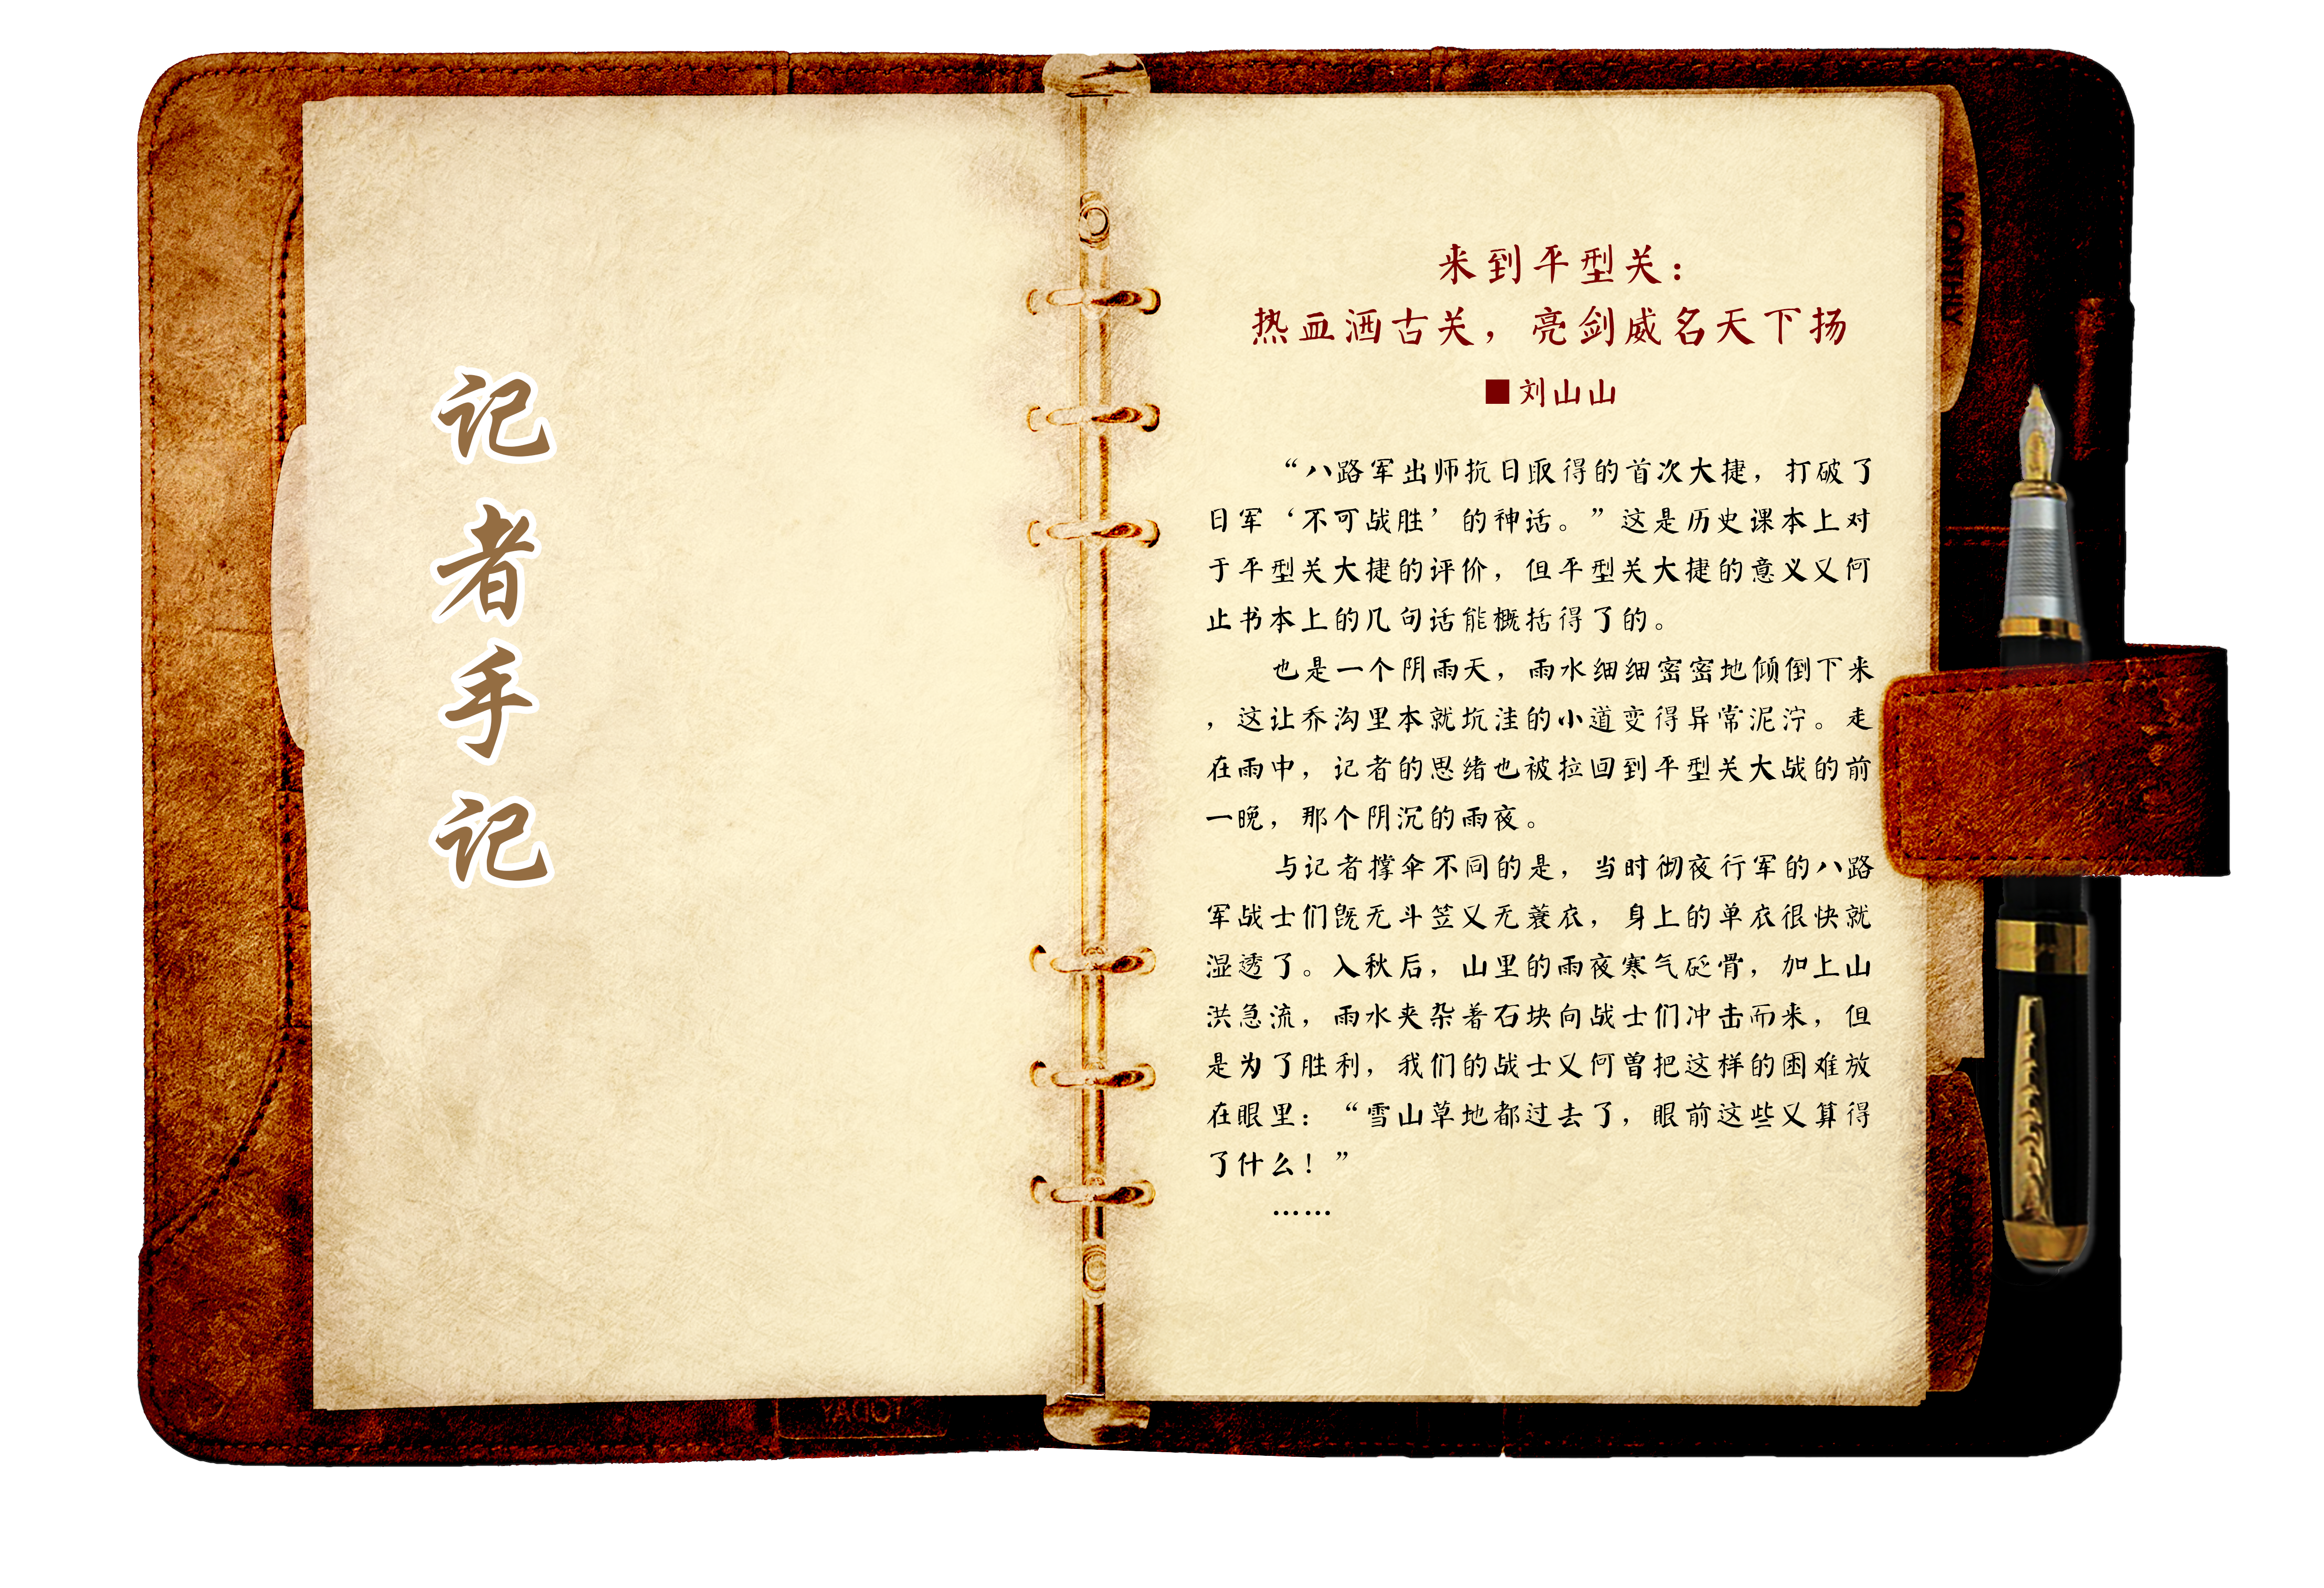 记
者
手
记
来到平型关：
热血洒古关，亮剑威名天下扬
■刘山山
“八路军出师抗日取得的首次大捷，打破了
日军‘不可战胜’的神话。”这是历史课本上对
于平型关大捷的评价，但平型关大捷的意义又何
止书本上的几句话能概括得了的。
也是一个阴雨天，雨水细细密密地倾倒下来
，这让乔沟里本就坑洼的小道变得异常泥泞。走
在雨中，记者的思绪也被拉回到平型关大战的前
一晚，那个阴沉的雨夜。
与记者撑伞不同的是，当时彻夜行军的八路
军战士们既无斗笠又无蓑衣，身上的单衣很快就
湿透了。入秋后，山里的雨夜寒气砭骨，加上山
洪急流，雨水夹杂着石块向战士们冲击而来，但
是为了胜利，我们的战士又何曾把这样的困难放
在眼里：“雪山草地都过去了，眼前这些又算得
了什么！”
……
MONTHLY
TODAY